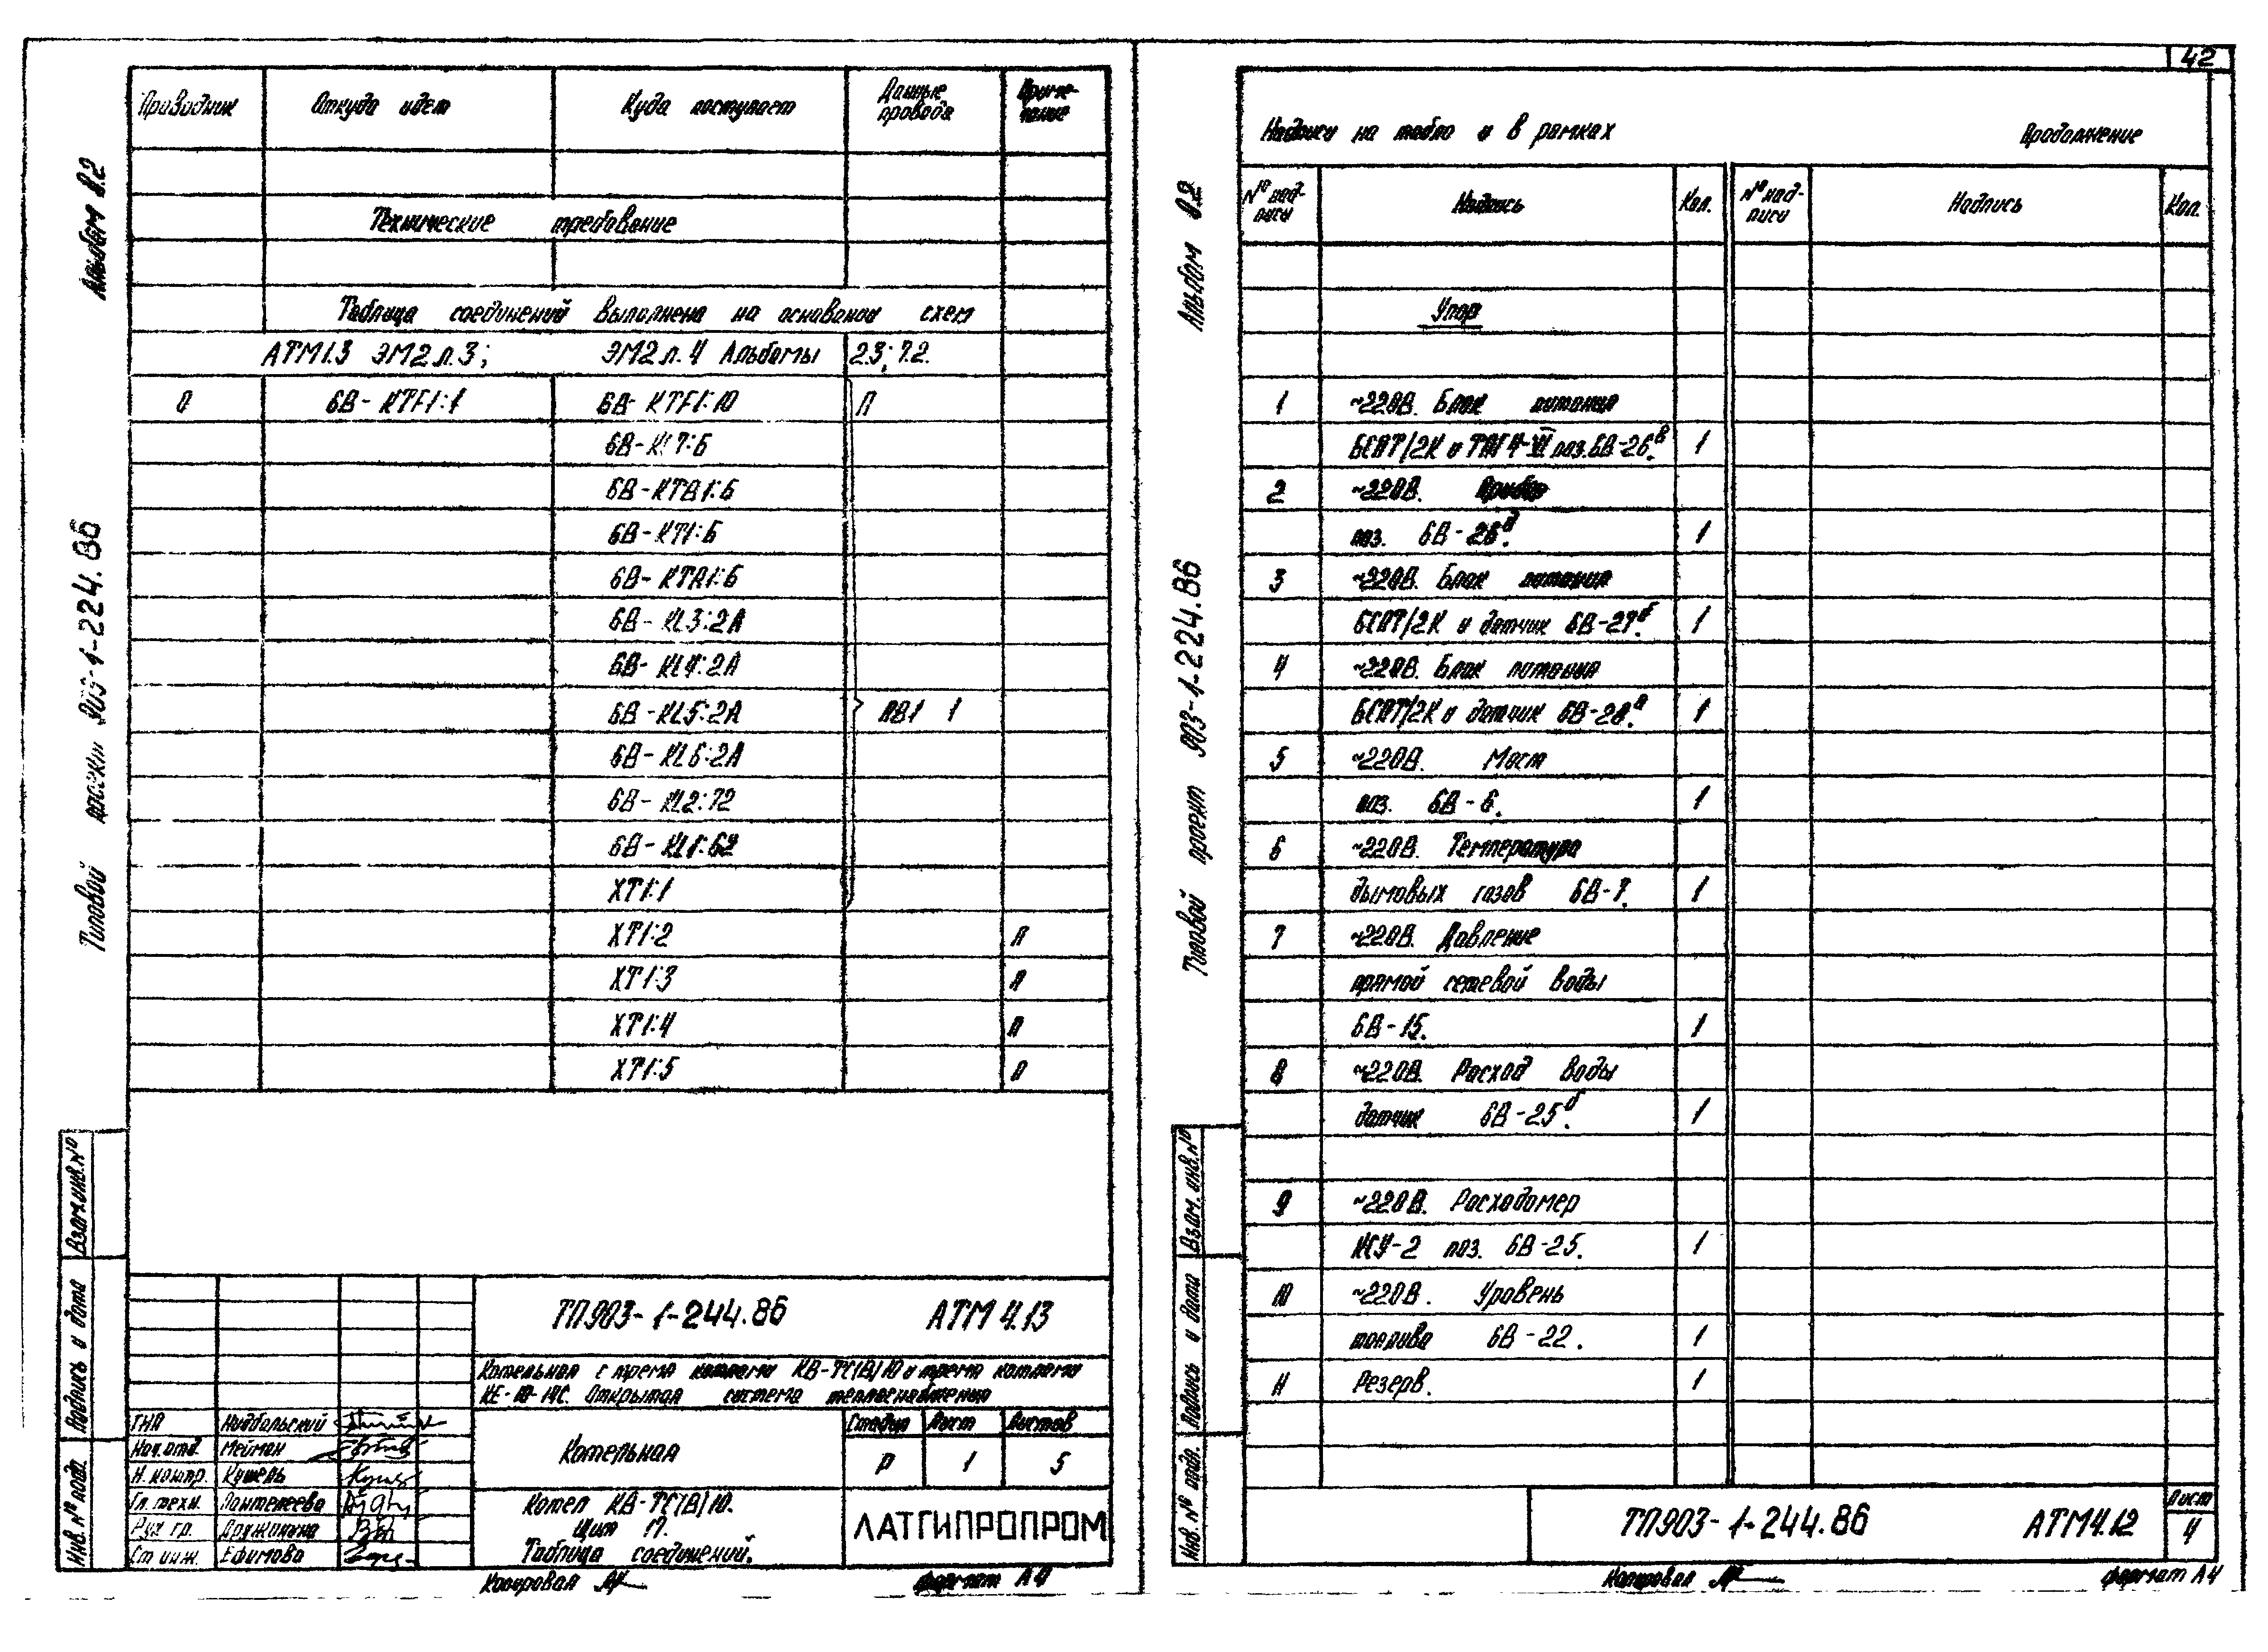 42
Альбом 8.2
Типовой проект 903-1-224.86
Проводник Откуда идет Куда поступает Данные провода Примечание
Технические требование
Таблица соединений выполнена на основании схем
АТМ1.3 ЭМ2 л.3; ЭМ2 л.4 Альбомы 2.3; 7.2.
0 6В-КТF1:1 6В-КТF1:10 П
6В-КL7:6
6В-КТВ1:6
6В-КТ1:6
6В-КТА1:6
6В-КL3:2А
6В-КL4:2А
6В-КL5:2А ПВ1 1
6В-КL6:2А
6В-КL2:72
6В-КL1:62
ХТ1:1
ХТ1:2 П
ХТ1:3 П
ХТ1:4 П
ХТ1:5 П
Взам.инв.№
Подпись и дата
Инв.№ подл.
ТП903-1-244.86 АТМ 4.13
Котельная с тремя котлами КВ-ТС(В)10 и тремя котлами
КЕ-10-14С. Открытая система теплоснабжения
ГИП Нидбальский
Нач.отд. Мейман
Н. контр. Кушель
Гл.техн. Пантелеева
Рук гр. Дружинина
Ст инж. Ефимова
Котельная
Стадия Лист Листов
Р 1 5
Котел КВ-ТС(В)10.
Щит 17.
Таблица соединений.
ЛАТГИПРОПРОМ
Копировал формат А4
Альбом 8.2
Типовой проект 903-1-224.86
Надписи на табло и в рамках Продолжение
№ надписи Надпись Кол. № надписи Надпись Кол.
Упор
1 ~220В. Блок питания
БСПТ/2К и ТМГ4-VI поз.6В-26в. 1
2 ~220В. Прибор
поз. 6В-26д. 1
3 ~220В. Блок питания
БСПТ/2К и датчик 6В-27б. 1
4 ~220В. Блок питания
БСПТ/2К и датчик 6В-28а. 1
5 ~220В. Мост
поз. 6В-6. 1
6 ~220В. Температура
дымовых газов 6В-7. 1
7 ~220В. Давление
прямой сетевой воды
6В-15. 1
8 ~220В. Расход воды
датчик 6В-25б. 1
9 ~220В. Расходомер
КСУ-2 поз. 6В-25. 1
10 ~220В. Уровень
топлива 6В-22. 1
11 Резерв. 1
Взам. инв.№
Подпись и дата
Инв.№ подл.
ТП903-1-244.86 АТМ4.12
Лист
4
Копировал формат А4